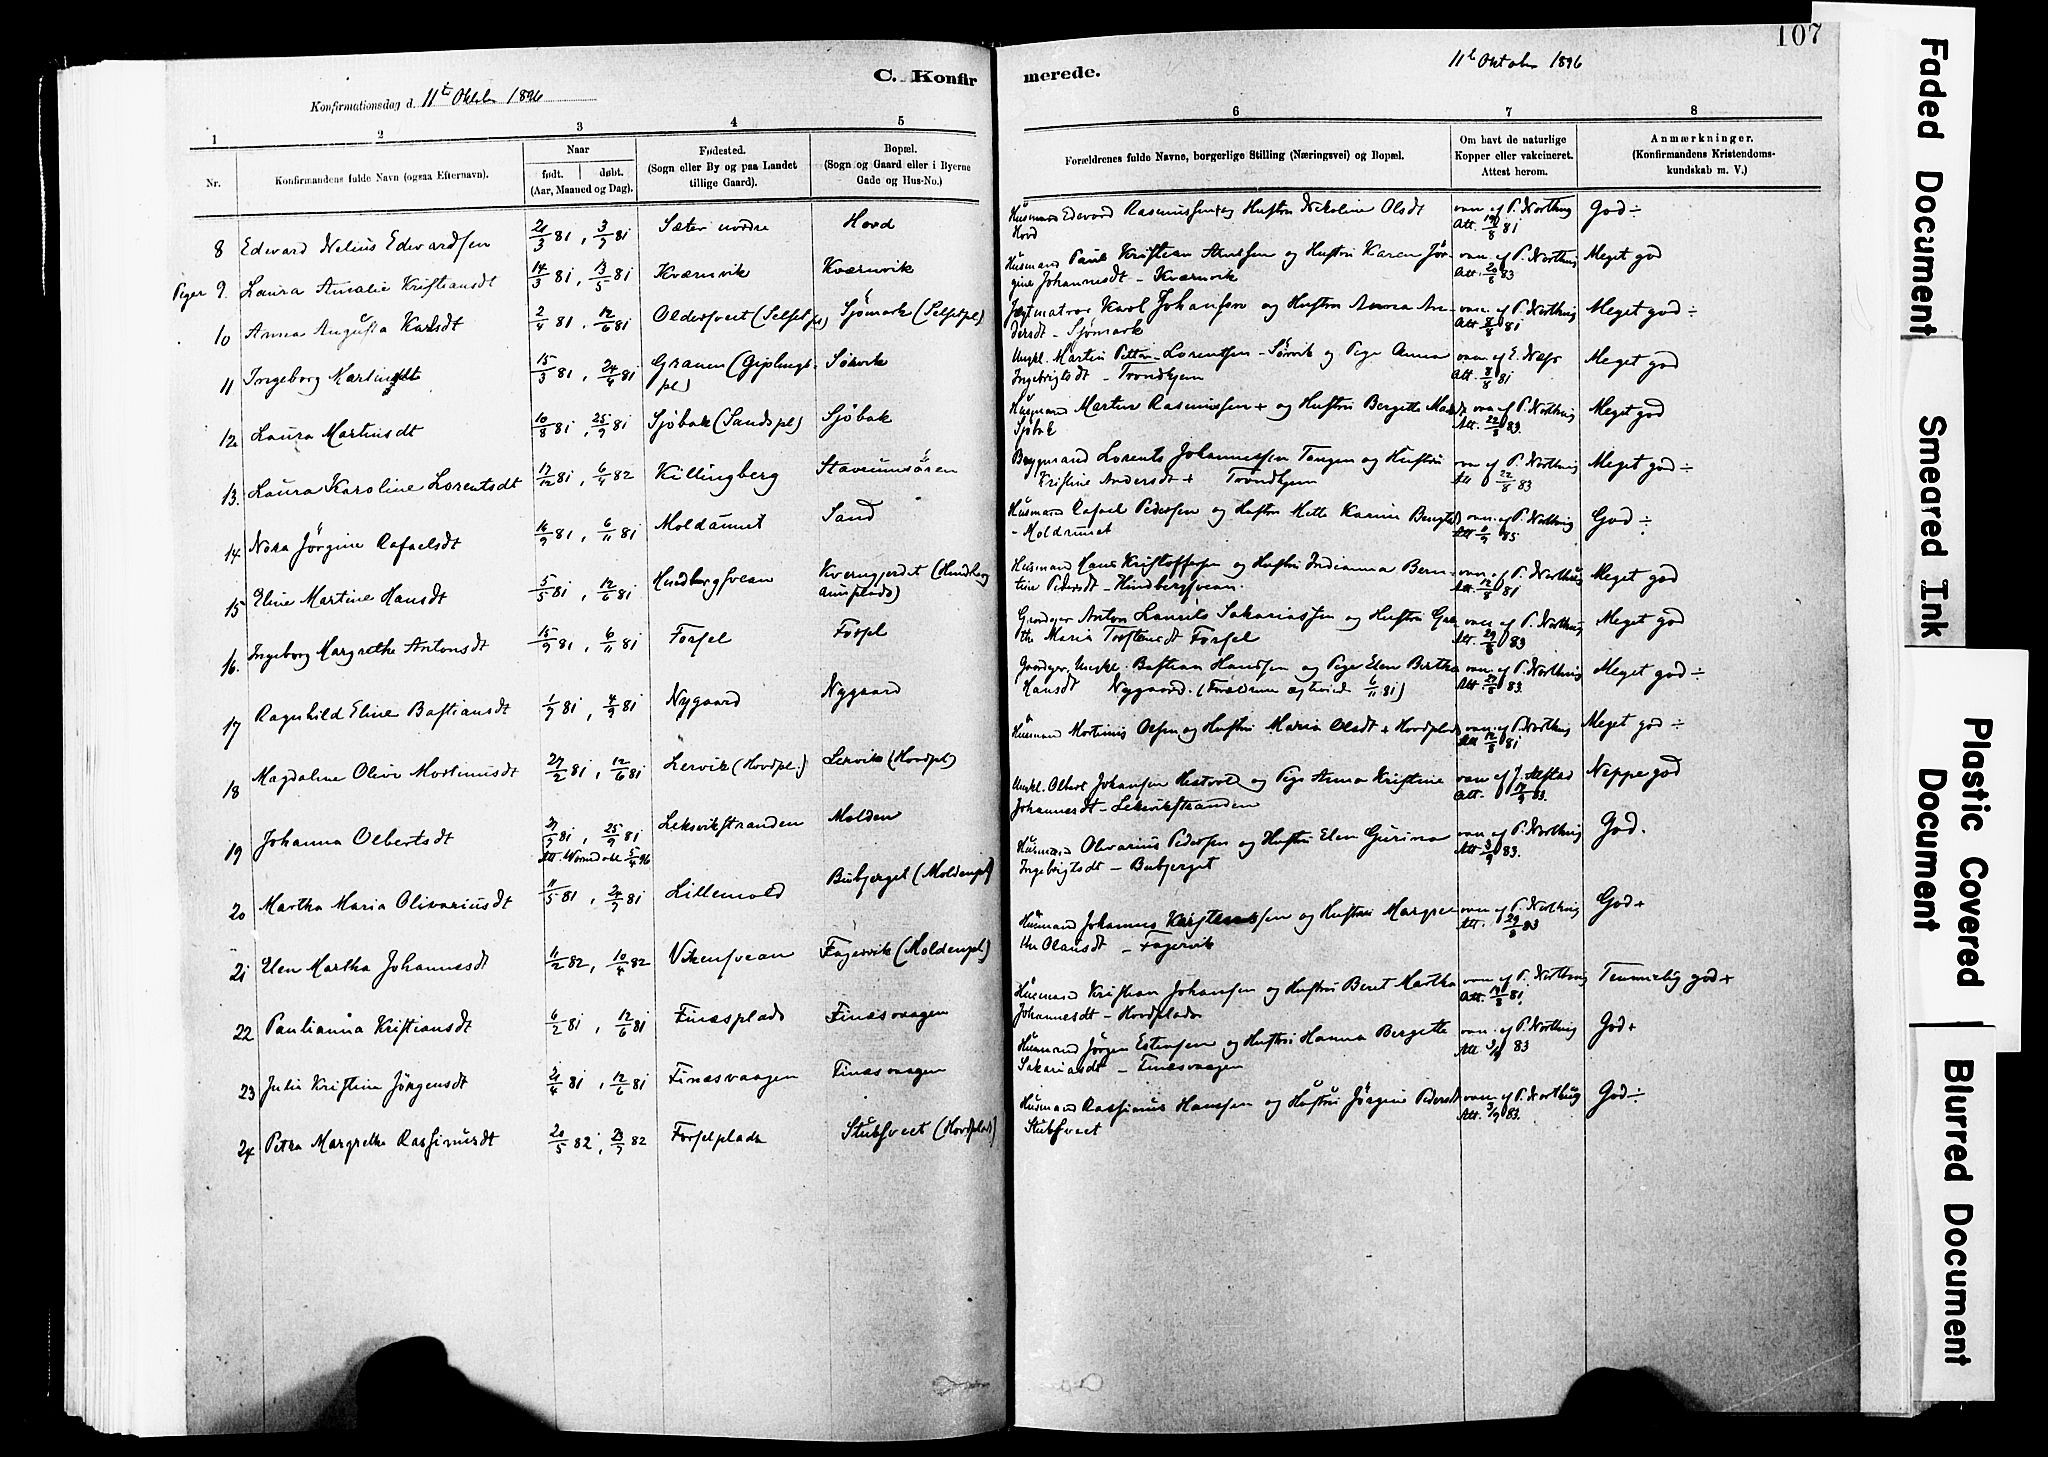 107
C. Konfirmerede.
Konfirmationsdag d. 11te Oktober 1896
11te Oktober 1896
1 2 3 4 5 6 7 8
Nr.
Konfirmandens fulde Navn (ogsaa Efternavn).
Naar
født. døbt.
(Aar, Maaned og Dag).
Fødested.
(Sogn eller By og paa Landet
tillige Gaard).
Bopæl.
(Sogn og Gaard eller i Byerne
Gade og Hus-No.)
Forældrenes fulde Navne, borgerlige Stilling (Næringsvei) og Bopæl.
Om havt de naturlige
Kopper eller vakcineret.
Attest herom.
Anmærkninger.
(Konfirmandens Kristendoms-
kundskab m. V.)
8 Edevard Nelius Edevardsen 21/3 81, 3/7 81 Sæter nordre Hovd
Husmand Edevard Rasmussen og Hustru Nikoline Olsdt vac. af P. Northug God ÷
Hovd Att. 19/8 81
Piger 9. Laura Amalie Kristiansdt 14/3 81, 13/5 81 Kværnvik Kværnvik
Husmand Paul Kristian Arntsen og Hustru Karen Jør- vac. af P. Northug Meget god
gine Johannesdt - Kværnvik Att. 20/8 83
10 Anna Augusta Karlsdt 2/4 81, 12/6 81 Oldersveet (Selsetpl) Sjømark (Selsetpl)
Karl Johansen og Hustru Anna An- vac. af P. Northug Meget god ÷
dersdt - Sjømark Att. 8/8 81
11 Ingeborg Martinsdt 15/3 81, 24/4 81 Granen (Gipling- Sørvik
pl)
Ungkl. Martin Petter Lorentsen - Sørvik og Pige Anna vac. af E. Næss Meget god
Ingebrigtsdt - Trondhjem Att. 8/8 81
12 Laura Martinsdt 10/8 81, 25/9 81 Sjøbak (Sandspl) Sjøbak
Husmand Martin Rasmussen + og Hustru Bergette vac. af P. Northug Meget god
Sjøbak Att. 22/8 83.
13. Laura Karoline Lorentsdt 17/12 81, 6/4 82 Killingberg
Lorents Johannessen Tangen og Hustru vac. af P. Northug Meget god ÷
Kristine Andersdt + Trondhjem Att 22/8 83
14 Nora Jørgine Rafaelsdt 16/9 81, 6/11 81 Moldaunet Sand
Husmand Rafael Pedersen og Hustru Mette Karine vac. af P. Northug God ÷
- Moldaunet
15 Eline Martine Hansdt 5/5 81, 12/6 81 Hindbergsvean Kverngjerdet
Husmand Hans Kristoffersen og Hustru Indianna Bern- vac. af P. Northug Meget god
tine Pedersdt - Hindbergsvean. Att. 12/8 81
16. Ingeborg Margrethe Antonsdt 15/9 81, 6/11 81 Forsel Forsel
Gaardejer Anton Laurits Sakariassen og Hustru Gre- vac. af P. Northug Meget god
the Maria Forsel Att. 29/8 83
17 Ragnhild Eline Bastiansdt 1/7 81, 4/9 81 Nygaard Nygaard
Ungkl. Bastian Hansen og Pige Elen Bertha vac. af P. Northug Meget god ÷
Hansdt Nygaard. (Forældrene ægteviede 6/11 81) Att. 83.
18 Magdaline Olive Mortinusdt 27/2 81, 12/6 81 Lervik (Hovdpl.) Lervik (Hovdpl)
Husmand Mortinus Olsen og Hustru Maria Olsdt + Hovdplads vac. af P. Northug Meget god ÷
Att 12/8 81
19 Johanna Olbertsdt 27/7 81, 25/9 81 Leksvikstranden Molden
Ungkl. Olbert Johansen og Pige Anna Kristine vac. af J. Aftstad Neppe god
Johannesdt - Leksvikstranden Att. 17/9 83.
20 Martha Maria Olivariusdt 11/5 81, 24/7 81 Lillemold Bubjerget (Moldenpl)
Husmand Olivarius Pedersen og Hustru Elen Gurina vac. af P. Northug God.
Ingebrigtsdt - Bubjerget Att 3/9 83.
21 Elen Martha Johannesdt 11/2 82, 10/4 82 Vikensvean Fagervik (Moldenpl.)
Husmand Johannes Karstensen og Hustru Margre- vac. af P. Northug God +
the Olausdt - Fagervik Att. 29/8 83
22 Paulianna Kristiansdt 6/2 81, 12/6 81 Finæsplads Finæsvaagen
Husmand Kristian Johansen og Hustru Beret Martha vac. af P. Northug Temmelig god +
Johannesdt - Hovdplads Att. 19/8 81.
23 Julie Kristine Jørgensdt 21/4 81, 12/6 81 Finæsvaagen Finæsvaagen
Husmand Jørgen Estensen og Hustru Hanna Bergette vac. af P. Northug God +
Sakariasdt - Finæsvaagen Att 3/9 83
24 Petra Margrethe Rasfinusdt 20/5 82, 23/7 82 Forselplads Stubsveet (Hovdplads)
Husmand Rasfinus Hansen og Hustru Jørgine Pedersdt vac. af P. Northug God ÷
Stubsveet Att. 3/9 83.
Faded Document
Smeared Ink
Plastic Covered
Document
Blurred Document